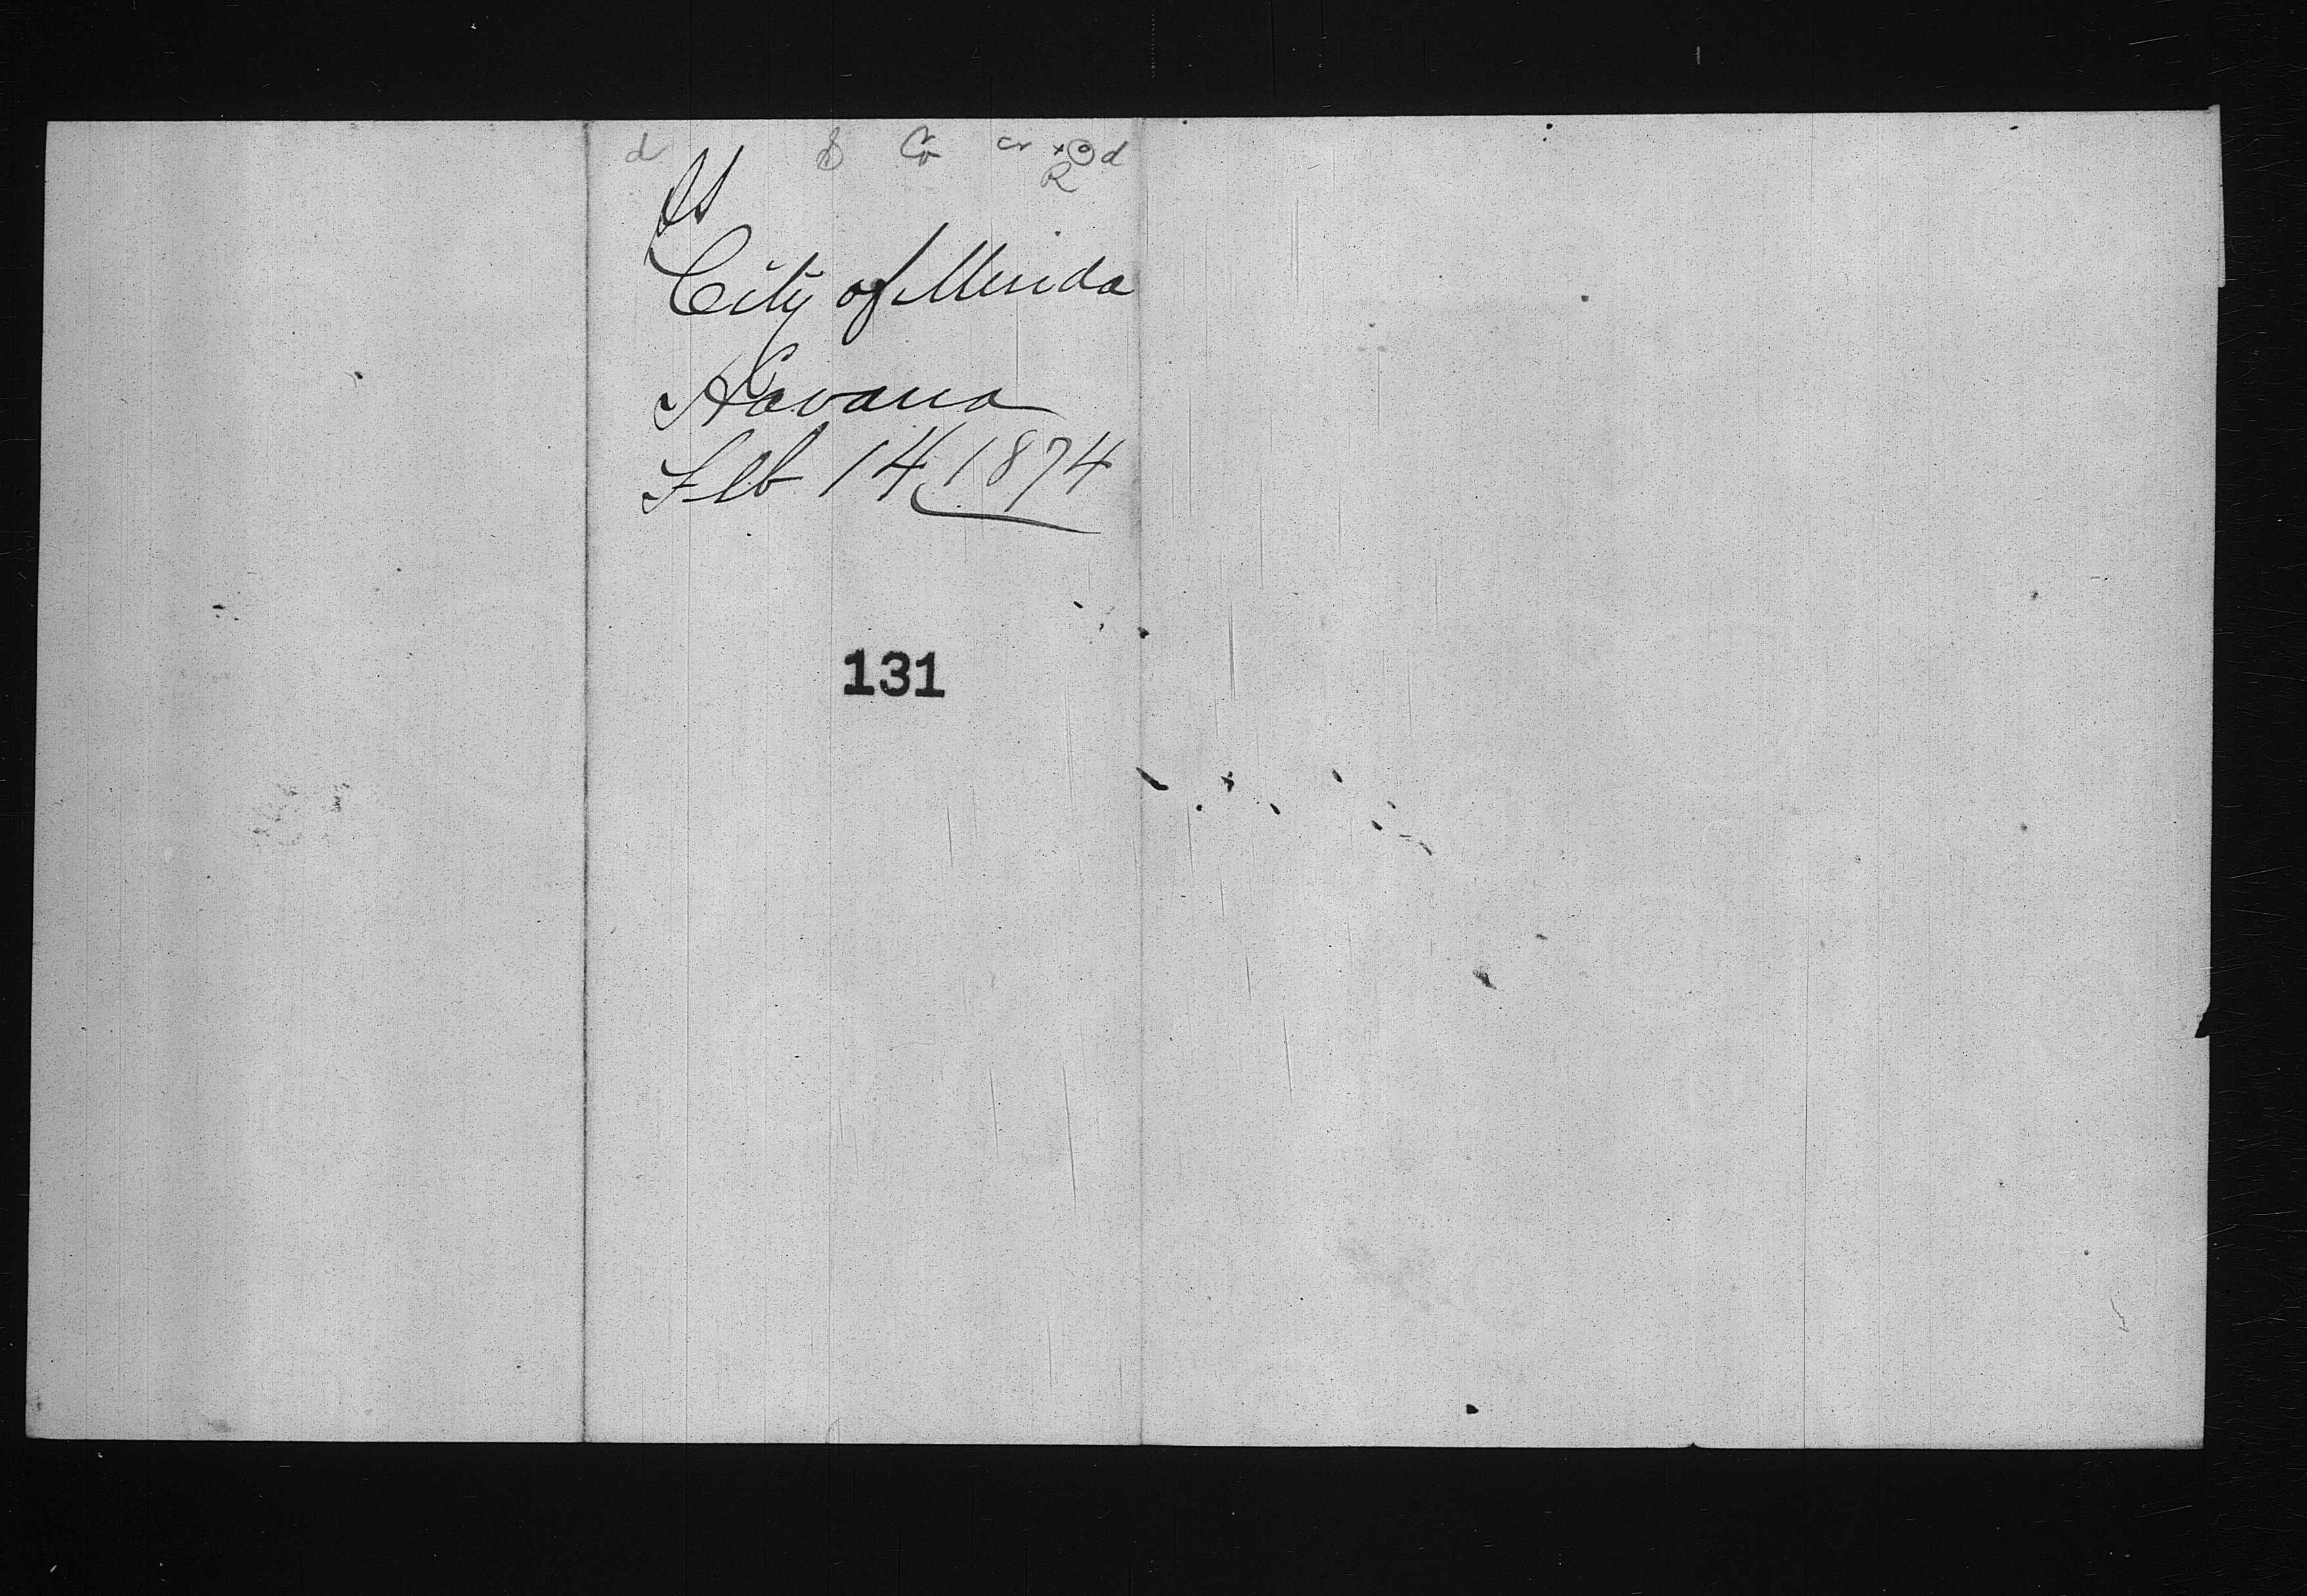 d B Co Cr x d
R
SS
City of Merida
Havana
Feb 14 1874
131